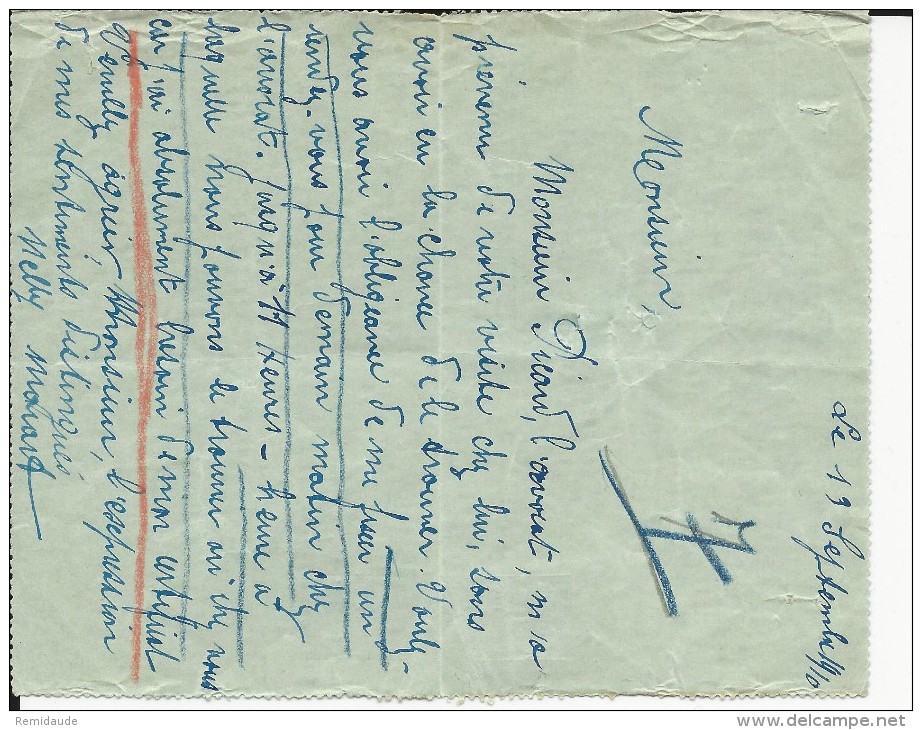 Le 19 Septembre 1910
Monsieur,
Monsieur Picard, l'avocat, m'a
prévenu de votre visite chez lui, sans
avoir eu la chance de le trouver. Voulez-
vous avoir l'obligeance de me fixer un
rendez-vous pour demain matin chez
l'avocat. Jusqu'à 11 heures - heure à
laquelle nous pouvons le trouver ou chez vous
car j'ai absolument besoin de mon certificat
Veuillez agréer Monsieur, l'expression
de mes sentiments distingués
Nelly
Remidaude
www.delcampe.net